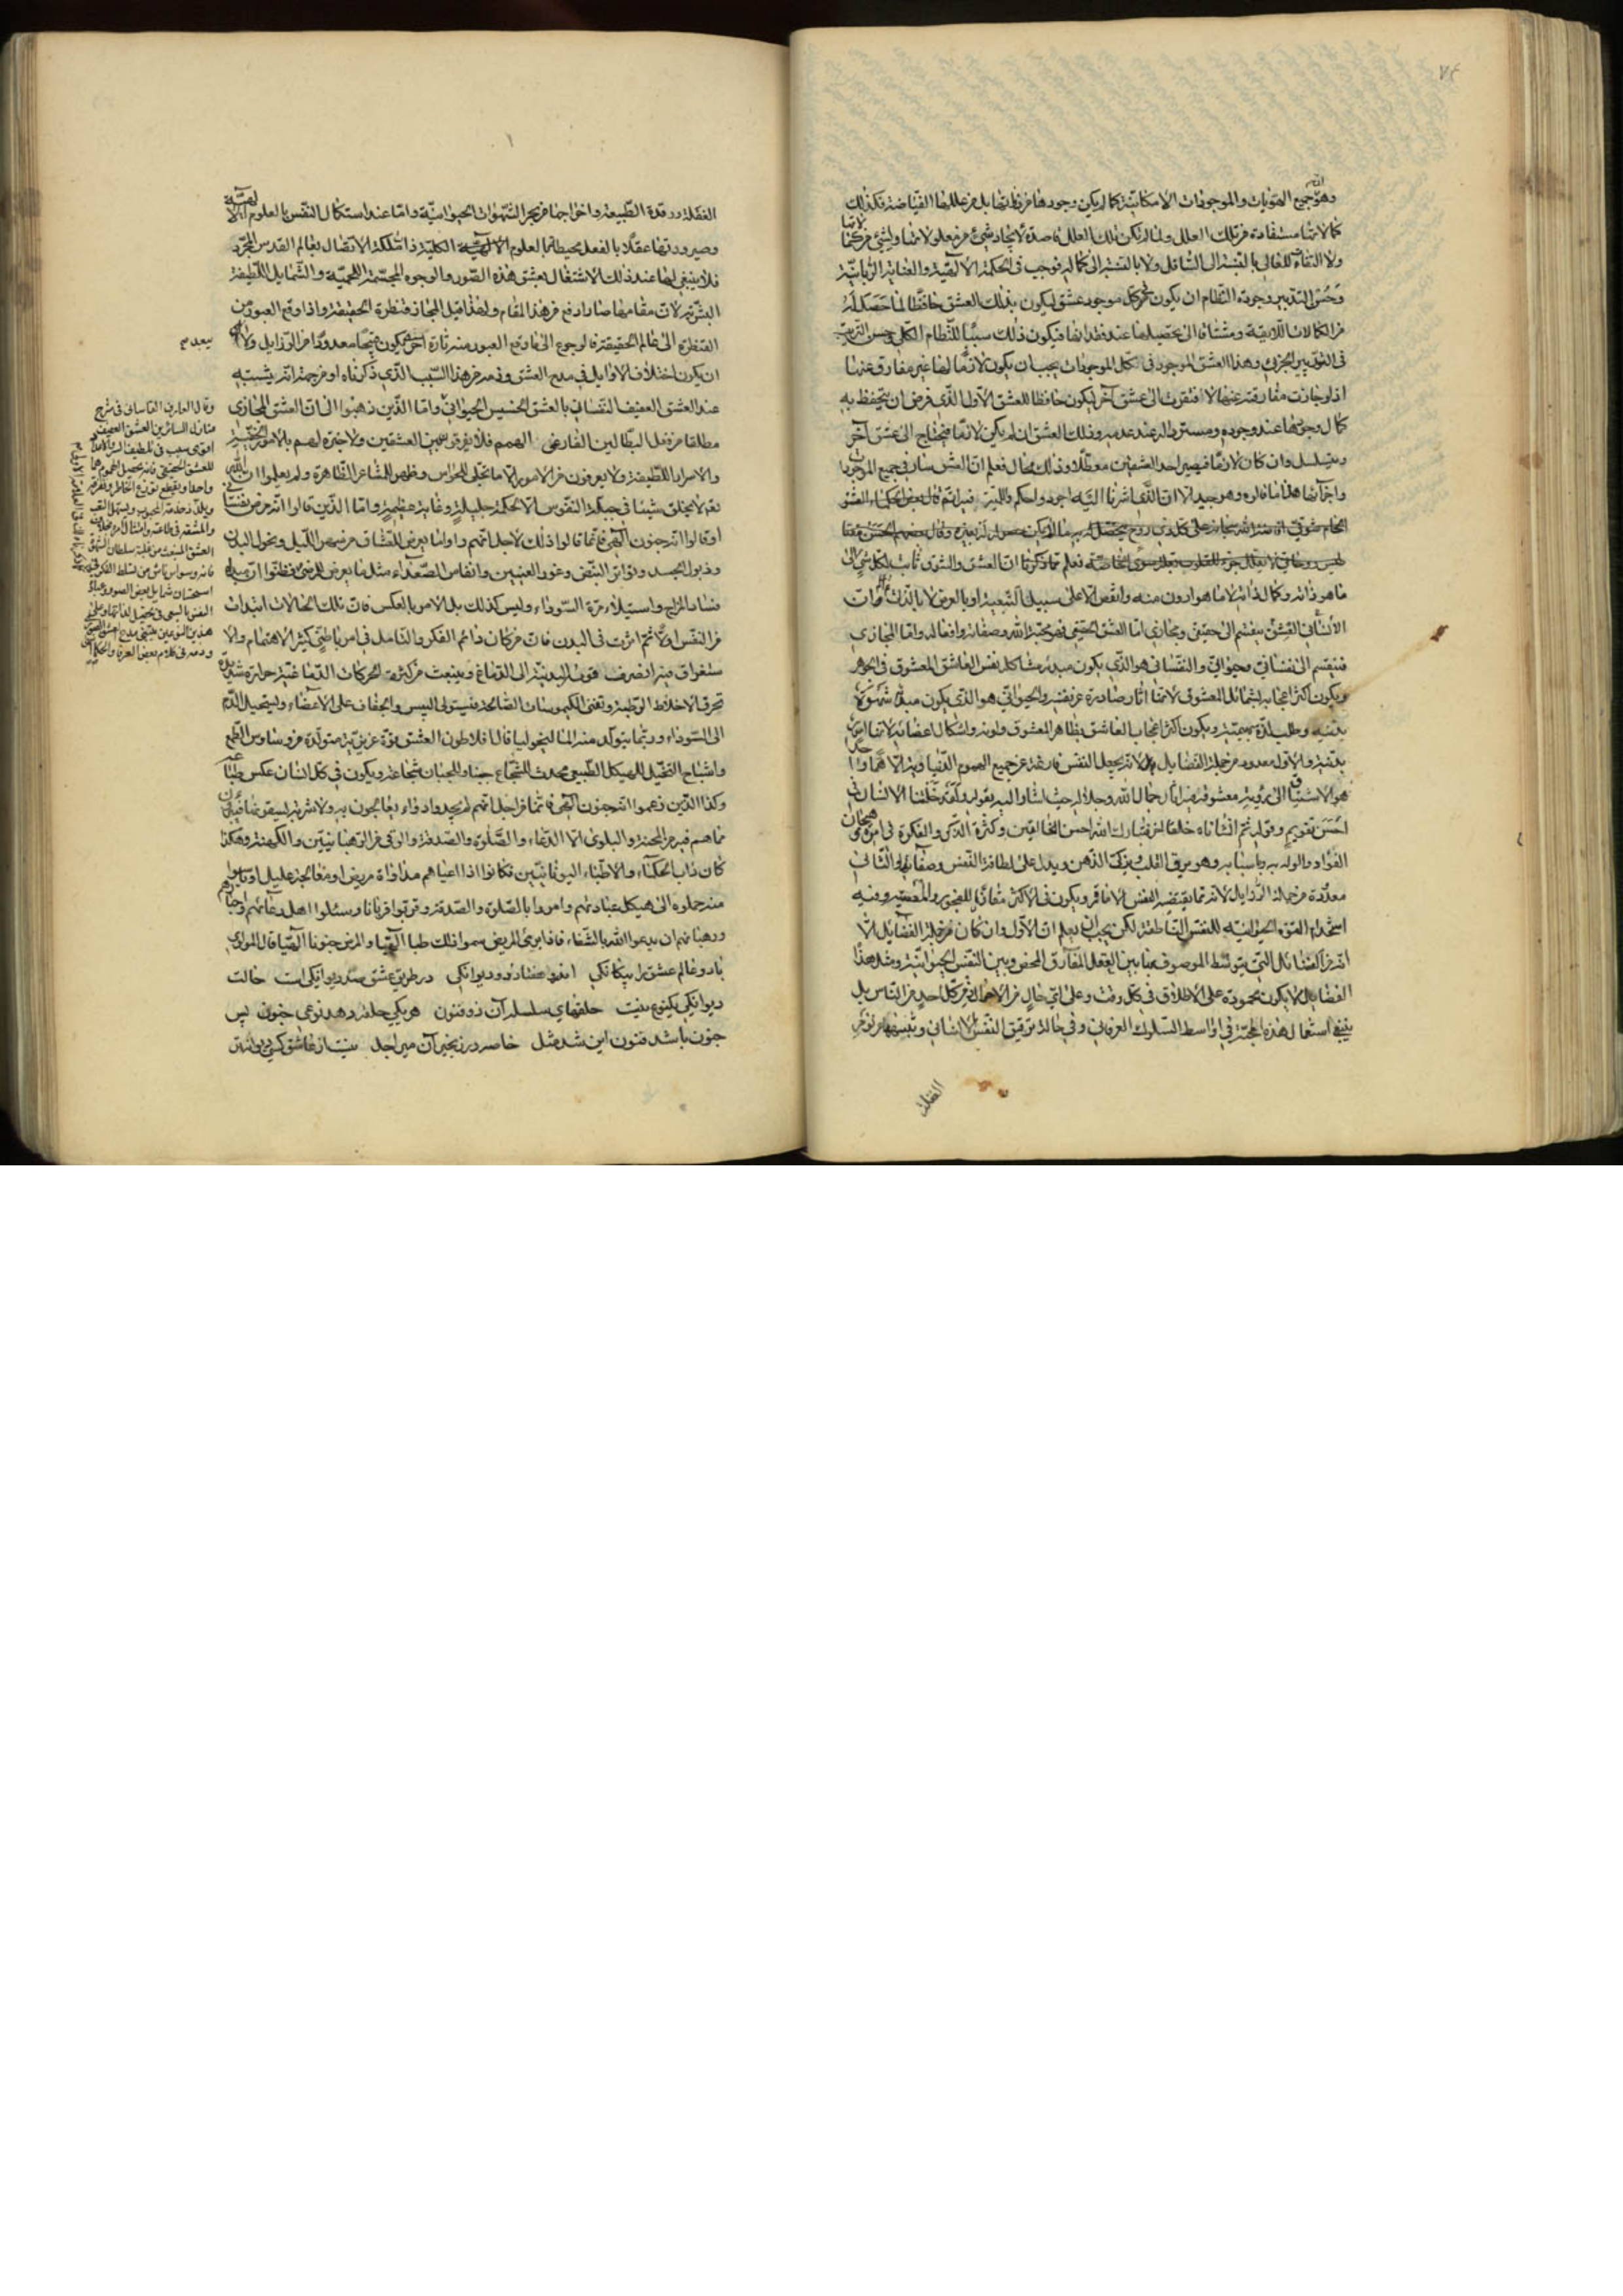 ٧٤
وهو جميع الهويات والموجودات الامكانية كما لم يكن وجودها من ذاتها بل من عللها الفياضة فكذلك
كمالاتها مستفادة من تلك العلل ولما لم يكن تلك العلل قاصدة لايجاد شئ من معلولاتها
ولا التفات للعالي بالنسبة الى السافل ولا بالنسبة الى كماله فوجب في الحكمة الالهية والعناية الربانية
وحسن التدبير وجودة النظام ان يكون في كل موجود عشق ليكون بذلك العشق حافظا لما حصل له
من الكمالات اللايقة ومشتاقا الى تحصيلها عند فقدانها فيكون ذلك سببا للنظام الكلي وحسن الترتيب
في التدبير الجزئي وهذا العشق الموجود في كل الموجودات يجب ان يكون لازما لها غير مفارق عنها
اذ لو جازت مفارقته عنها لافتقرت الى عشق آخر ليكون حافظا للعشق الاول الذي فرض ان يتحفظ به
كمال وجودها عند وجوده ومستردا له عند عدمه وذلك العشق ان لم يكن لازما فيحتاج الى عشق آخر
ويتسلسل وان كان لازما فيصير احد العشقين معطلا وذلك محال فعلم ان العشق سار في جميع الموجودات
واجزائها هذا ما قالوه وهو جيد الا ان الذي اشرنا اليه اجود واحكم
فعلم مما ذكرنا ان العشق والشوق ثابت لكل شئ الى
ما هو ذاته وكمال ذاته لا ما هو ادون منه وانقص الا على سبيل التبعية او بالعرض لا بالذات
الانساني العشق ينقسم الى حقيقي ومجازي اما العشق الحقيقي فهو محبة الله وصفاته وافعاله واما المجازي
فينقسم الى نفساني وحيواني والنفساني هو الذي يكون مبدؤه مشاكلة نفس العاشق المعشوق في الجوهر
ويكون اكثر اعجابه بشمائل المعشوق لانها آثار صادرة عن نفسه والحيواني هو الذي يكون مبدؤه شهوة
بدنية وطلب لذة بهيمية ويكون اكثر اعجاب العاشق بظاهر المعشوق ولونه واشكال اعضائه لانها امور
بدنية والاول معدود من جملة الفضايل لانه يجعل النفس فارغة عن جميع الهموم الدنياوية الا هما واحدا
هو الاشتياق الى رؤية معشوق فيه آثار جمال الله وجلاله حيث اشار اليه بقوله ولقد خلقنا الانسان في
احسن تقويم وقوله ثم انشاناه خلقا اخر فتبارك الله احسن الخالقين وكثرة الذكر والفكرة في امره وهيجان
الفؤاد والوله به وباسبابه وهو يرق القلب ويذكي الذهن ويدل على لطافة النفس وصفائها والثاني
معدودة من جملة الرذايل لانه مما يقتضيه النفس الامارة ويكون في الاكثر مقارنا للفجور والمعصية وفيه
استخدام القوة الحيوانية للنفس الناطقة لكن يجب ان يعلم ان الاول وان كان من جملة الفضائل الا
انه من الفضائل التي يتوسط الموصوف بها بين العقل المفارق المحض وبين النفس الحيوانية ومثل هذا
الفضايل لا يكون محمودة على الاطلاق في كل وقت وعلى اي حال من الاحوال ومن كل احد من الناس بل
ينبغي استعمال هذه المحبة في اواسط السلوك العرفاني وفي حالة ترقيق النفس الانساني وتنبيهها من نوم
الغفلة
الغفلة ورقدة الطبيعة واخراجها من بحر الشهوات الحيوانية واما عند استكمال النفس بالعلوم الالهية
وصيرورتها عقلا بالفعل محيطا بالعلوم الكلية ذا ملكة الاتصال بعالم القدس المجرد
فلا ينبغي لها عند ذلك الاشتغال بعشق هذه الصور والوجوه المجسمة اللحمية والشمايل اللطيفة
البشرية لان مقامها صار ارفع من هذا المقام ولهذا قيل المجاز قنطرة الحقيقة واذا وقع العبور من
القنطرة الى عالم الحقيقة فالرجوع الى ما وقع العبور منه تارة اخرى يكون قبيحا معدودا من الرذايل ولا
يبعد
ان يكون اختلاف الاوايل في مدح العشق وذمه من هذا السبب الذي ذكرناه او من جهة انه يشتبه
عند العشق العفيف النفساني بالعشق الخسيس الحيواني واما الذين ذهبوا الى ان العشق المجازي
مطلقا من فعل البطالين الفارغي الهمم فلا يفرقون بين العشقين ولا خبرة لهم بالامور الخفية
والاسرار اللطيفة ولا يعرفون من الامور الا ما تجلى للحواس وظهر للمشاعر الظاهرة ولم يعلموا ان الله
تعم لا يخلق شيئا في جبلة النفوس الا لحكمة جليلة وغاية عظيمة واما الذين قالوا انه مرض نفساني
او قالوا انه جنون الهي فانما قالوا ذلك لاجل انهم راوا ما يعرض للعشاق من سهر الليل ونحول البدن
وذبول الجسد وتواتر النبض وغور العينين وانفاس الصعداء مثل ما يعرض للمرضى فظنوا ان مبداه
فساد المزاج واستيلاء مرة السوداء وليس كذلك بل الامر بالعكس فان تلك الحالات ابتدات
من النفس اولا ثم اثرت في البدن فان من كان دائم الفكر والتامل في امر باطني كثير الاهتمام والا
ستغراق فيه انصرفت قوى البدنية الى الدماغ وينبعث من كثرة الحركات الدماغية حرارة شديدة
تحرق الاخلاط الرطبة وتفني الكيموسات الصالحة فيستولي اليبس والجفاف على الاعضاء ويستحيل الدم
الى السوداء وربما يتولد منه الماليخوليا قال افلاطون العشق قوة غريزية متولدة من وساوس الطمع
واشباح التخيل للهيكل الطبيعي محدث للشجاع جبنا وللجبان شجاعة ويكون في كل انسان عكس طباعه
وكذا الذين زعموا انه جنون الهي فانما من اجل انهم لم يجدوا دواء يعالجون به ولا شربة يسقونها فيبرؤن
مما هم فيه من المحنة والبلوى الا الدعاء والصلوة والصدقة والرقي من الرهبانيين والكهنة وهكذا
كان داب الحكماء والاطباء اليونانيين فكانوا اذا اعياهم مداواة مريض او معالجة عليل او يئسوا
منه حملوه الى هيكل عباداتهم وامروا بالصلوة والصدقة وقربوا قربانا وسئلوا اهل دعائهم واحبارهم
ورهبانهم ان يدعوا الله بالشفاء فاذا برئ المريض سموا ذلك طبا الهيا والمرض جنونا الهيا قال المولوي
با دو عالم عشق را بيكانكي اندرو هفتاد ودو ديوانكي در طريق عشق صد ديوانكي است حالت
ديوانكي يكنوع نيست حلقهاي سلسله آن ذو فنون هر يكي حلقه دهد نوعي جنون پس
جنون باشد فنون اين شد مثل خاصه در زنجير آن مير اجل نيست از عاشق كسي ديوانه تر
وقال العارف القاساني في شرح
منازل السائرين العشق العفيف
اقوى سبب في تلطيف السر والاعداد
للعشق الحقيقي فانه يجعل الهموم هما
واحدا ويقطع توزع الخاطر وتفرقه
ويلذ خدمة المحبوب ويسهل التعب
والمشقة في طاعته وامتثال امره بخلاف
العشق المنبعث من غلبة سلطان الشهوة
فانه وسواس ناش من تسلط الفكر في
استحسان شمايل بعض الصور وعبادة
النفس بالسعي في تحصيل لذاتها وعلى
هذين النوعين يبتني مدح العشق
وذمه في كلام بعض العرفاء والحكماء